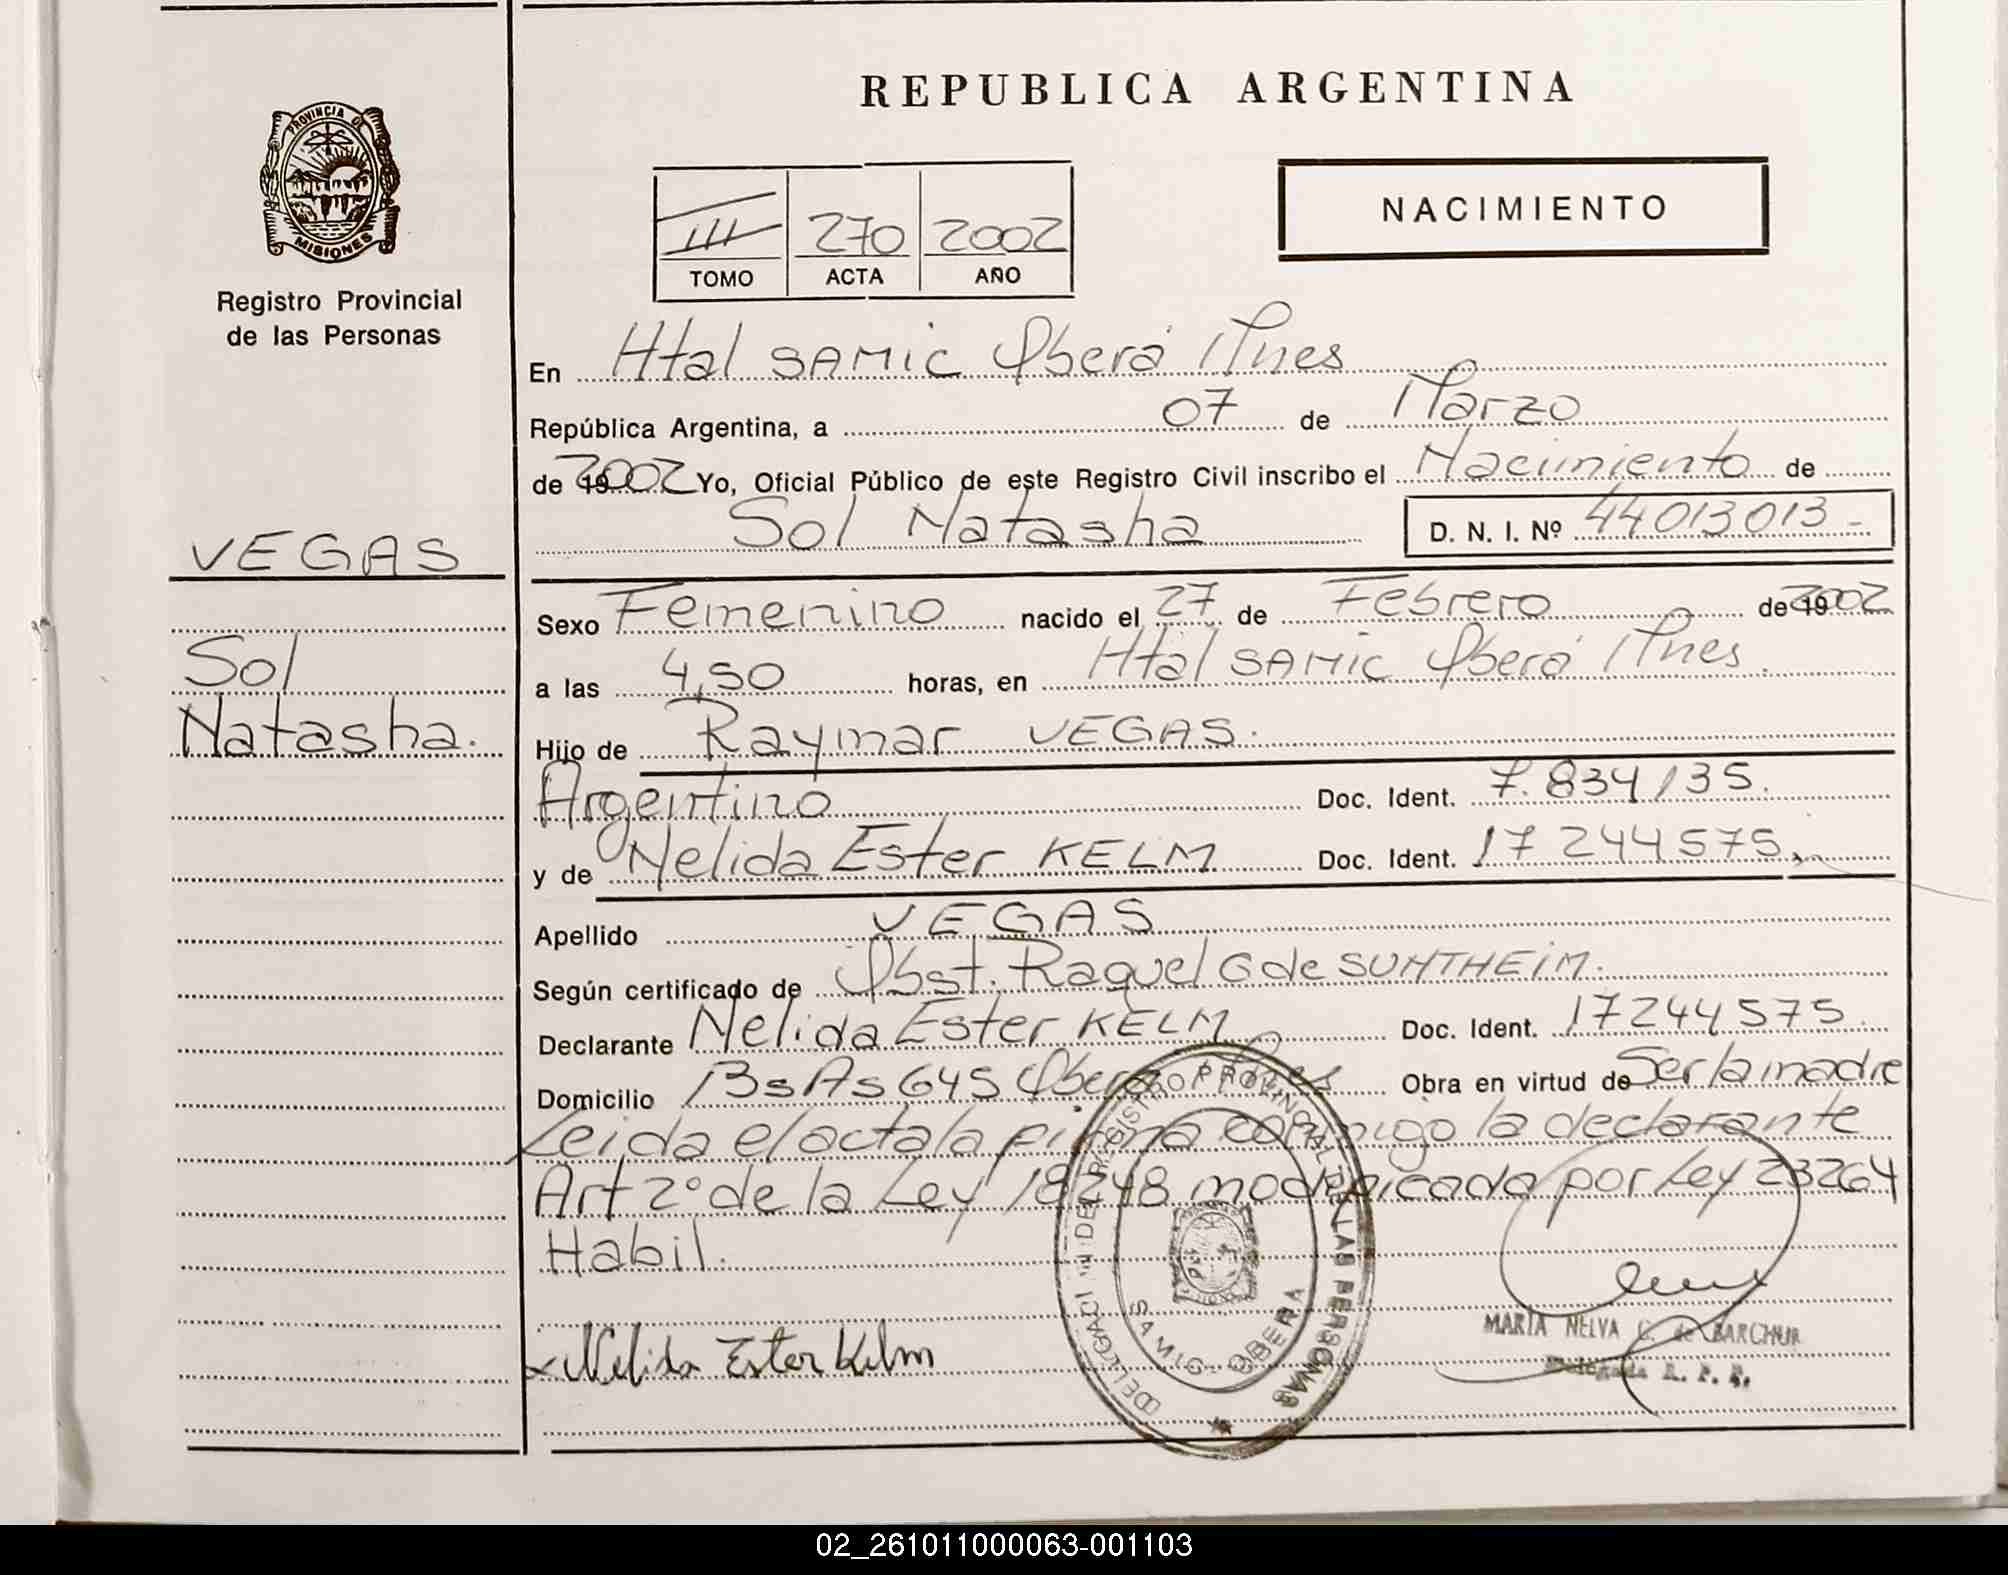 REPUBLICA ARGENTINA
PROVINCIA DE
MISIONES
Registro Provincial
de las Personas
NACIMIENTO
III 270 2002
TOMO ACTA AÑO
En Htal SAMIC Oberá Mnes
República Argentina, a 07 de Marzo
de 2002 Yo, Oficial Público de este Registro Civil inscribo el Nacimiento de
Sol Natasha D. N. I. Nº 44013013-
VEGAS
Sol
Natasha.
Sexo Femenino nacido el 27 de Febrero de 2002
a las 4,50 horas, en Htal SAMIC Oberá Mnes.
Hijo de Raymar VEGAS.
Argentino Doc. Ident. 7.834135.
y de Nelida Ester KELM Doc. Ident. 17244575,
Apellido VEGAS
Según certificado de Obst. Raquel G de SUNTHEIM.
Declarante Nelida Ester KELM Doc. Ident. 17244575.
Domicilio BsAs 645 Oberá Mnes Obra en virtud de Ser la madre
Leida el acta la firma conmigo la declarante
Art 2º de la Ley 18248 modificada por Ley 23264
Habil.
x Nelida Ester Kelm
DELEGACION DEL REGISTRO PROVINCIAL DE LAS PERSONAS
SAMIC - OBERA
MARIA NELVA C. de BARCHUK
Delegada R. P. P.
02_261011000063-001103